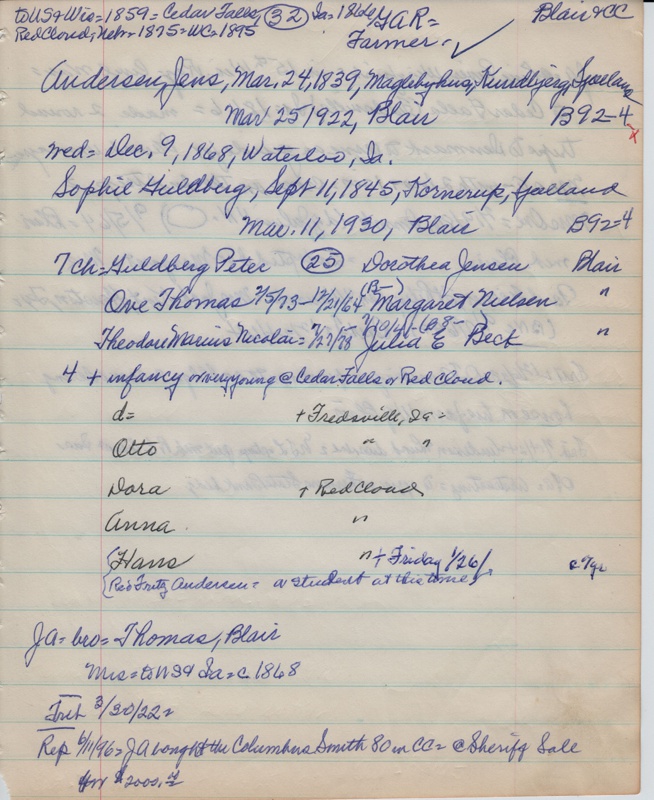 to US & Wis = 1859 = Cedar Falls, (32) Ia = 1860s GAR = Blair & CC
Red Cloud, Nebr = 1875 = WC = 1895 Farmer = ✓
Andersen, Jens, Mar. 24, 1839, Maglebyhus, Kundbjerg, Sjælland
Mar 25 1922, Blair B92-4
wed = Dec. 9, 1868, Waterloo, Ia.
Sophie Guldberg, Sept 11, 1845, Kornerup, Sjælland
Mar. 11, 1930, Blair B92-4
7 ch = Guldberg Peter (25) = Dorothea Jensen Blair
Ove Thomas 2/5/73 - 12/21/64 = Margaret Nielsen "
Theodore Marius Nicolai = 7/27/78 Julia E Beck "
4 + infancy or very young @ Cedar Falls or Red Cloud.
d = + Fredsville, Ia =
Otto " "
Dora + Red Cloud
Anna "
Hans " + Friday 1/26/
(Rev Fritz Andersen = a student at this time)
JA = bro = Thomas, Blair
Mrs = to US & Ia = c 1868
Trib 3/30/22 =
Rep 6/11/96 = JA bought the Columbus Smith 80 in CC = @ Sheriff Sale
for $2000.